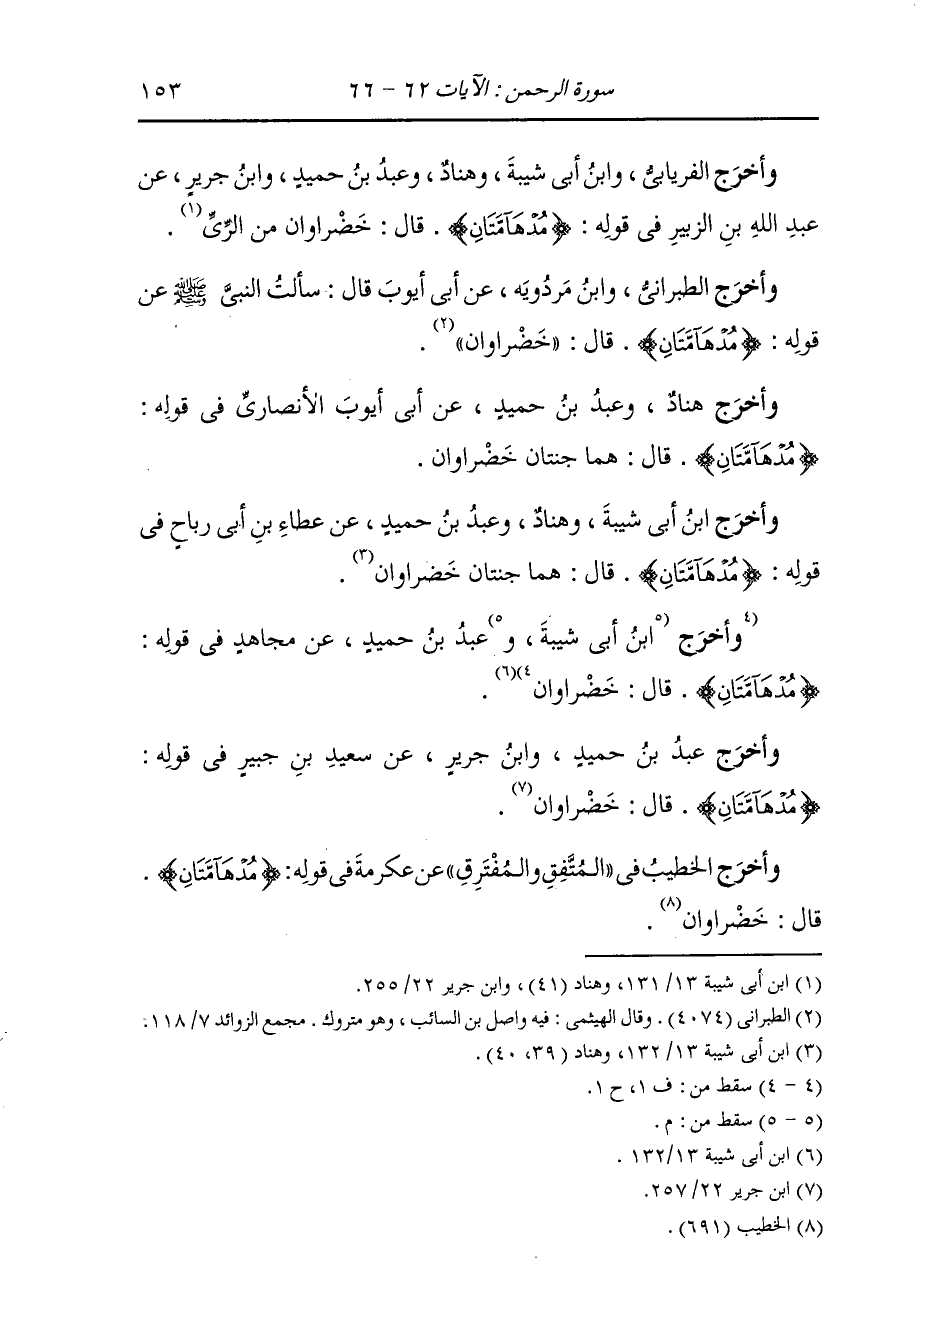 سورة الرحمن : الآيات ٦٢ - ٦٦ ١٥٣
وأخرَج الفريابىُّ ، وابنُ أبى شيبةَ ، وهنادٌ ، وعبدُ بنُ حميدٍ ، وابنُ جريرٍ ، عن
عبدِ اللهِ بنِ الزبيرِ فى قولِه : ﴿مُدْهَآمَّتَانِ﴾ . قال : خَضْراوان من الرِّىِّ(١) .
وأخرَج الطبرانىُّ ، وابنُ مَردُويَه ، عن أبى أيوبَ قال : سألتُ النبىَّ ﷺ عن
قولِه : ﴿مُدْهَآمَّتَانِ﴾ . قال : «خَضْراوان»(٢) .
وأخرَج هنادٌ ، وعبدُ بنُ حميدٍ ، عن أبى أيوبَ الأنصارىِّ فى قولِه :
﴿مُدْهَآمَّتَانِ﴾ . قال : هما جنتان خَضْراوان .
وأخرَج ابنُ أبى شيبةَ ، وهنادٌ ، وعبدُ بنُ حميدٍ ، عن عطاءِ بنِ أبى رباحٍ فى
قولِه : ﴿مُدْهَآمَّتَانِ﴾ . قال : هما جنتان خَضراوان(٣) .
(٤وأخرَج (٥ابنُ أبى شيبةَ ، و٥)عبدُ بنُ حميدٍ ، عن مجاهدٍ فى قولِه :
﴿مُدْهَآمَّتَانِ﴾ . قال : خَضْراوان٤)(٦) .
وأخرَج عبدُ بنُ حميدٍ ، وابنُ جريرٍ ، عن سعيدِ بنِ جبيرٍ فى قولِه :
﴿مُدْهَآمَّتَانِ﴾ . قال : خَضْراوان(٧) .
وأخرَج الخطيبُ فى «المُتَّفِقِ والمُفْتَرِقِ» عن عكرمةَ فى قولِه: ﴿مُدْهَآمَّتَانِ﴾ .
قال : خَضْراوان(٨) .
(١) ابن أبى شيبة ١٣/ ١٣١، وهناد (٤١) ، وابن جرير ٢٢/ ٢٥٥.
(٢) الطبرانى (٤٠٧٤) . وقال الهيثمى : فيه واصل بن السائب ، وهو متروك . مجمع الزوائد ٧/ ١١٨.
(٣) ابن أبى شيبة ١٣/ ١٣٢، وهناد (٣٩، ٤٠) .
(٤ - ٤) سقط من : ف ١، ح ١.
(٥ - ٥) سقط من : م .
(٦) ابن أبى شيبة ١٣/ ١٣٢ .
(٧) ابن جرير ٢٢/ ٢٥٧.
(٨) الخطيب (٦٩١) .